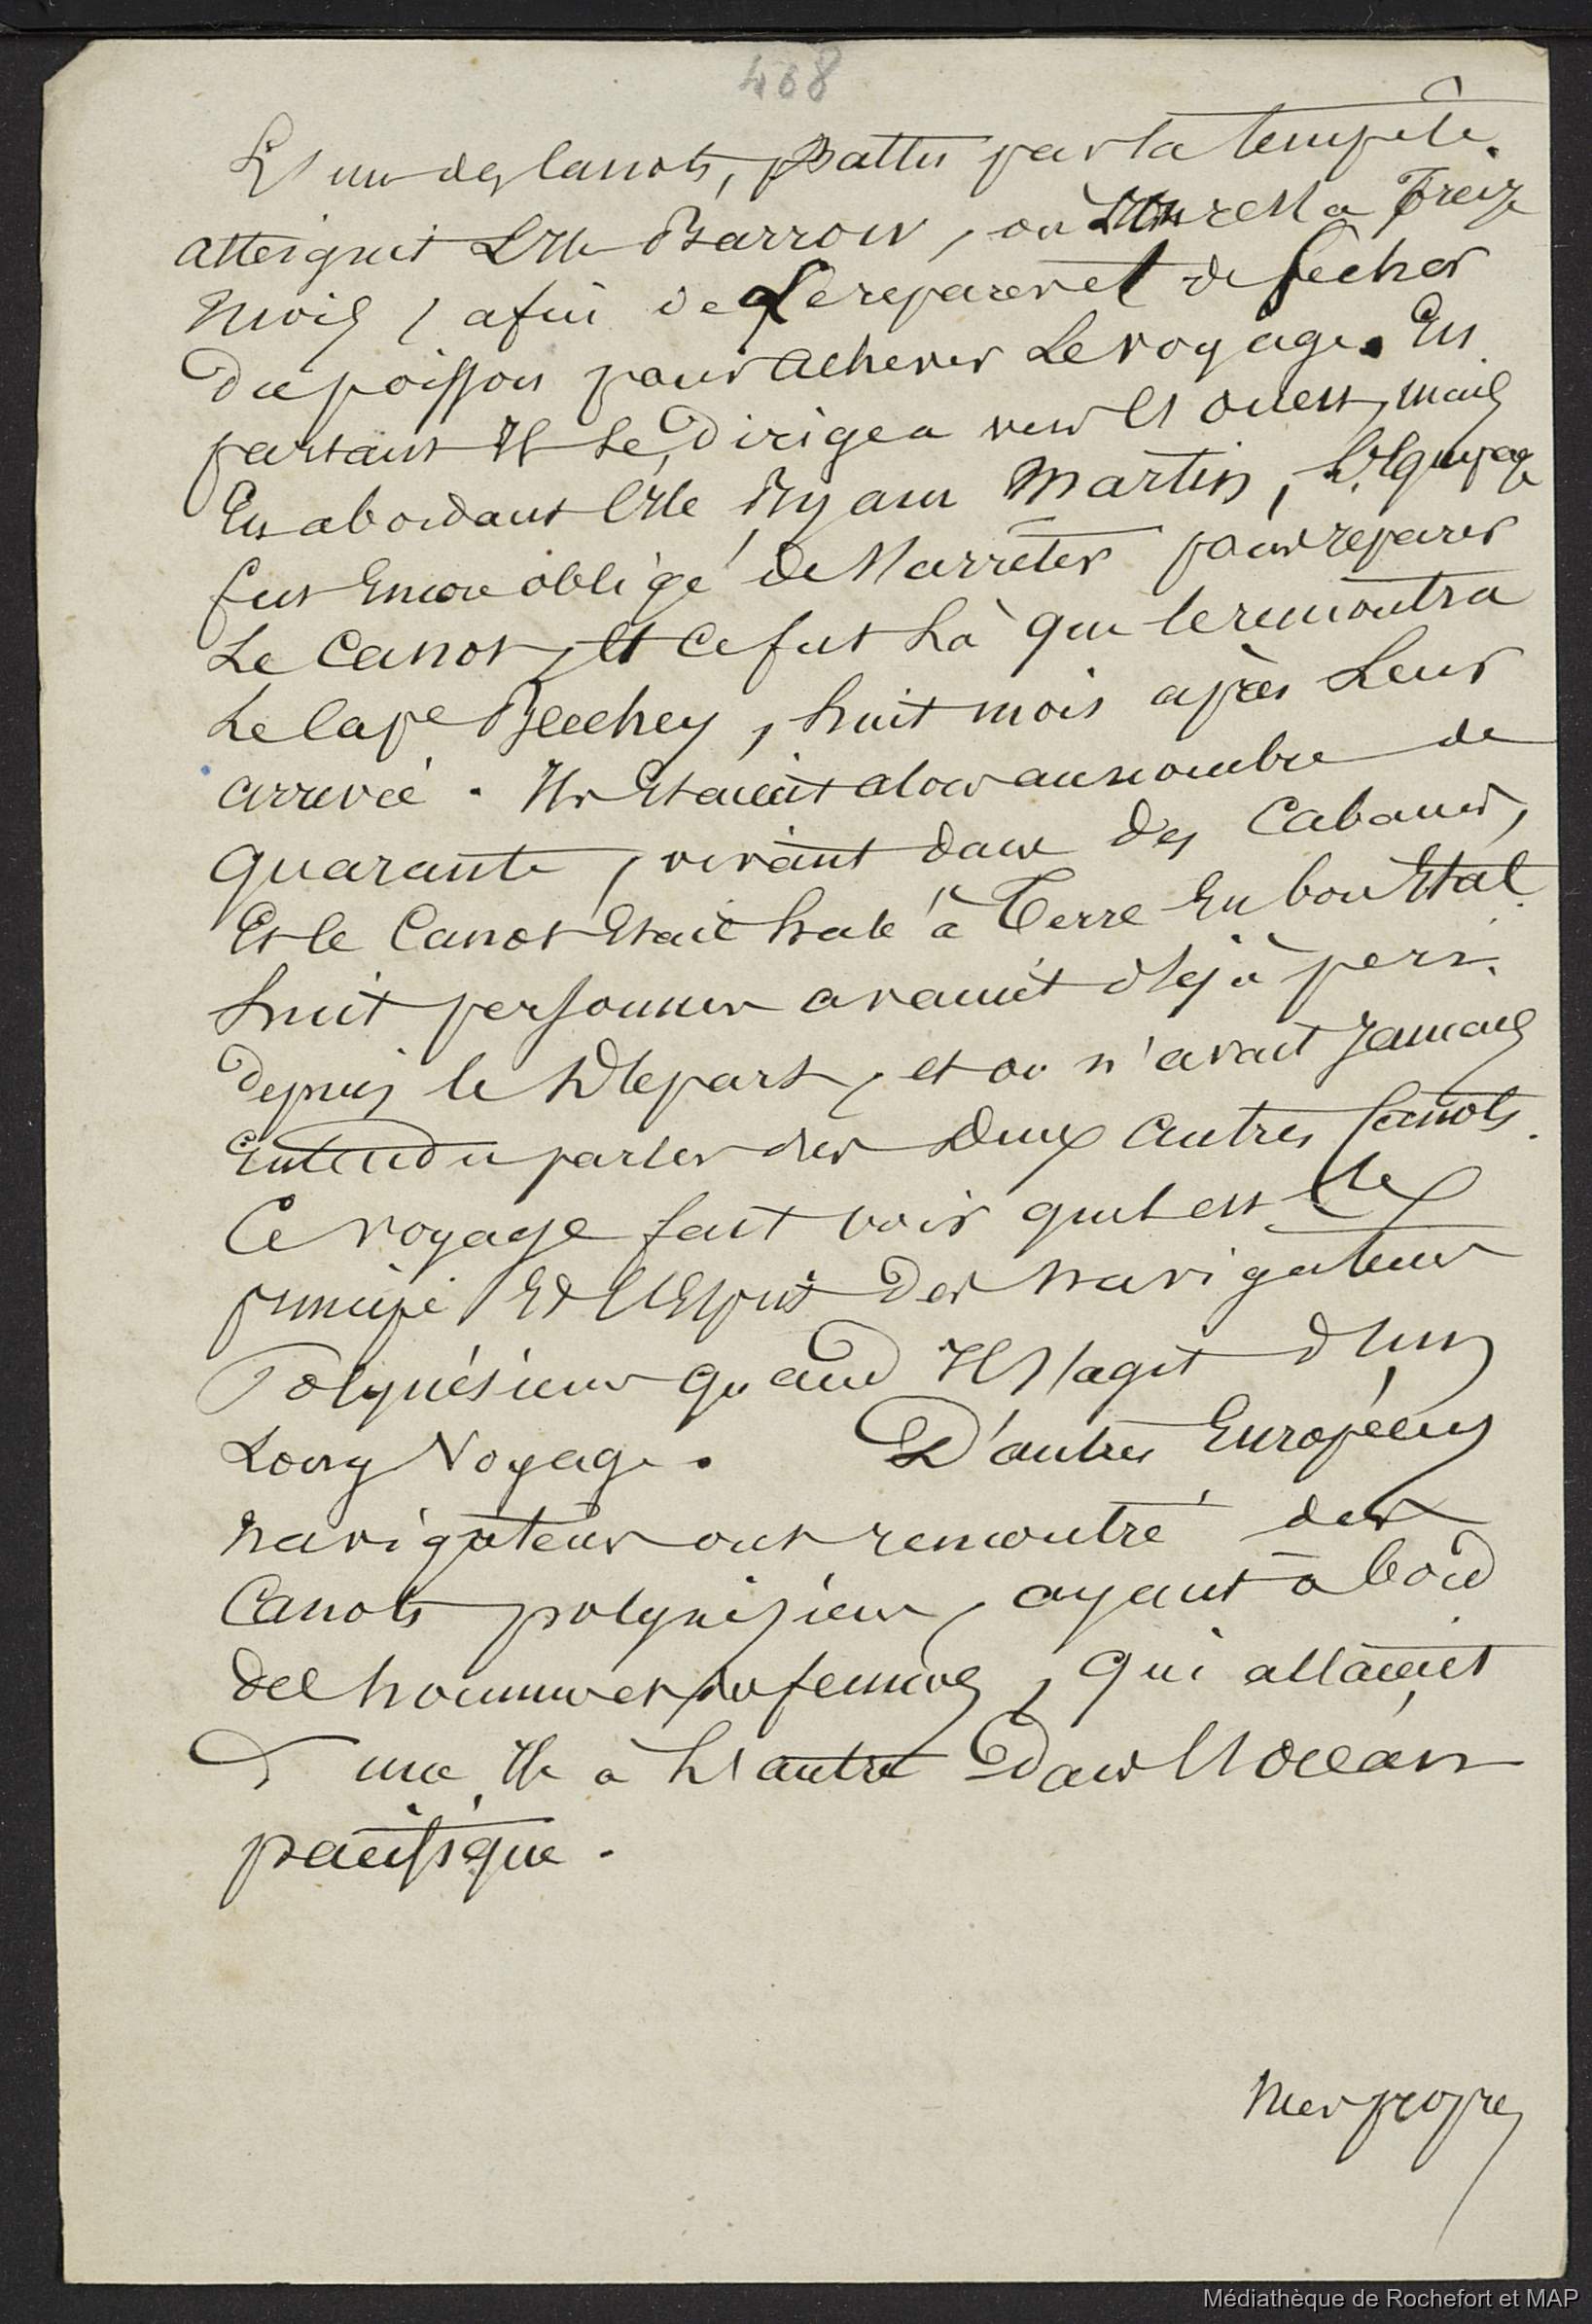 468
L'un des Canots, Battu par la tempête.
atteignit L'Ile Barrow, où resta Treize
mois, afin de Le reparer et de secher
du poisson pour achever Le voyage. En
partant Il se Dirigea vers l'ouest, mais
En abordant l'Ile Byam Martin, L'Equipage
fut Encore obligé de s'arrêter pour reparer
Le Canot, et Ce fut Là que le rencontra
Le Cape Beechey, huit mois après Leur
arrivée. Ils Etaient alors au nombre de
quarante, vivant dans des Cabanes,
Et le Canot Etait halé à Terre En bon Etat.
huit personnes avaient déjà peri
depuis le Départ, et on n'avait Jamais
Entendu parler des Deux autres Canots.
Ce voyage fait voir quel est le
principe Et l'Esprit Des navigateurs
Polynésiens quand Il s'agit d'un
Long Voyage. D'autres Européens
navigateurs ont rencontré des
Canots polynésiens, ayant à bord
des hommes femmes, qui allaient
D'une Ile à L'autre Dans l'océan
pacifique.
Mes propres
Médiathèque de Rochefort et MAP